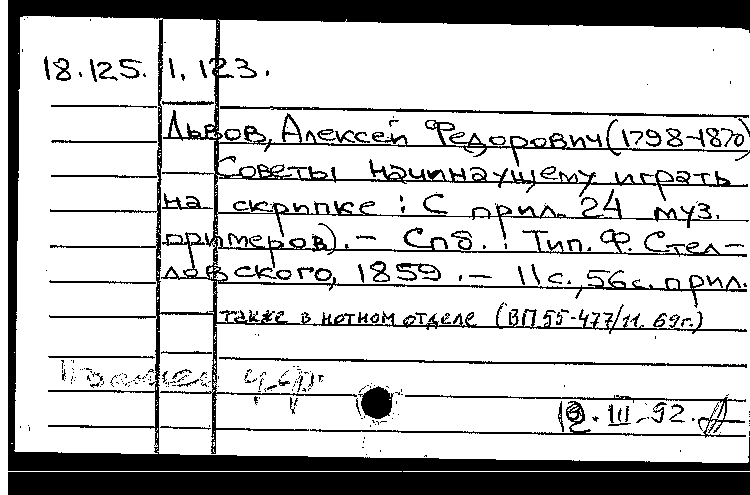 18.125.1.123.
Львов, Алексей Федорович (1798-1870)
Советы начинаущему играть
на скрипке : С прил. 24 муз.
примеров). - Спб. : Тип. Ф. Стел-
ловского, 1859. - 11 с., 56 с. прил.
также в нотном отделе (ВП 55-477/11. 69г.)
III-92.